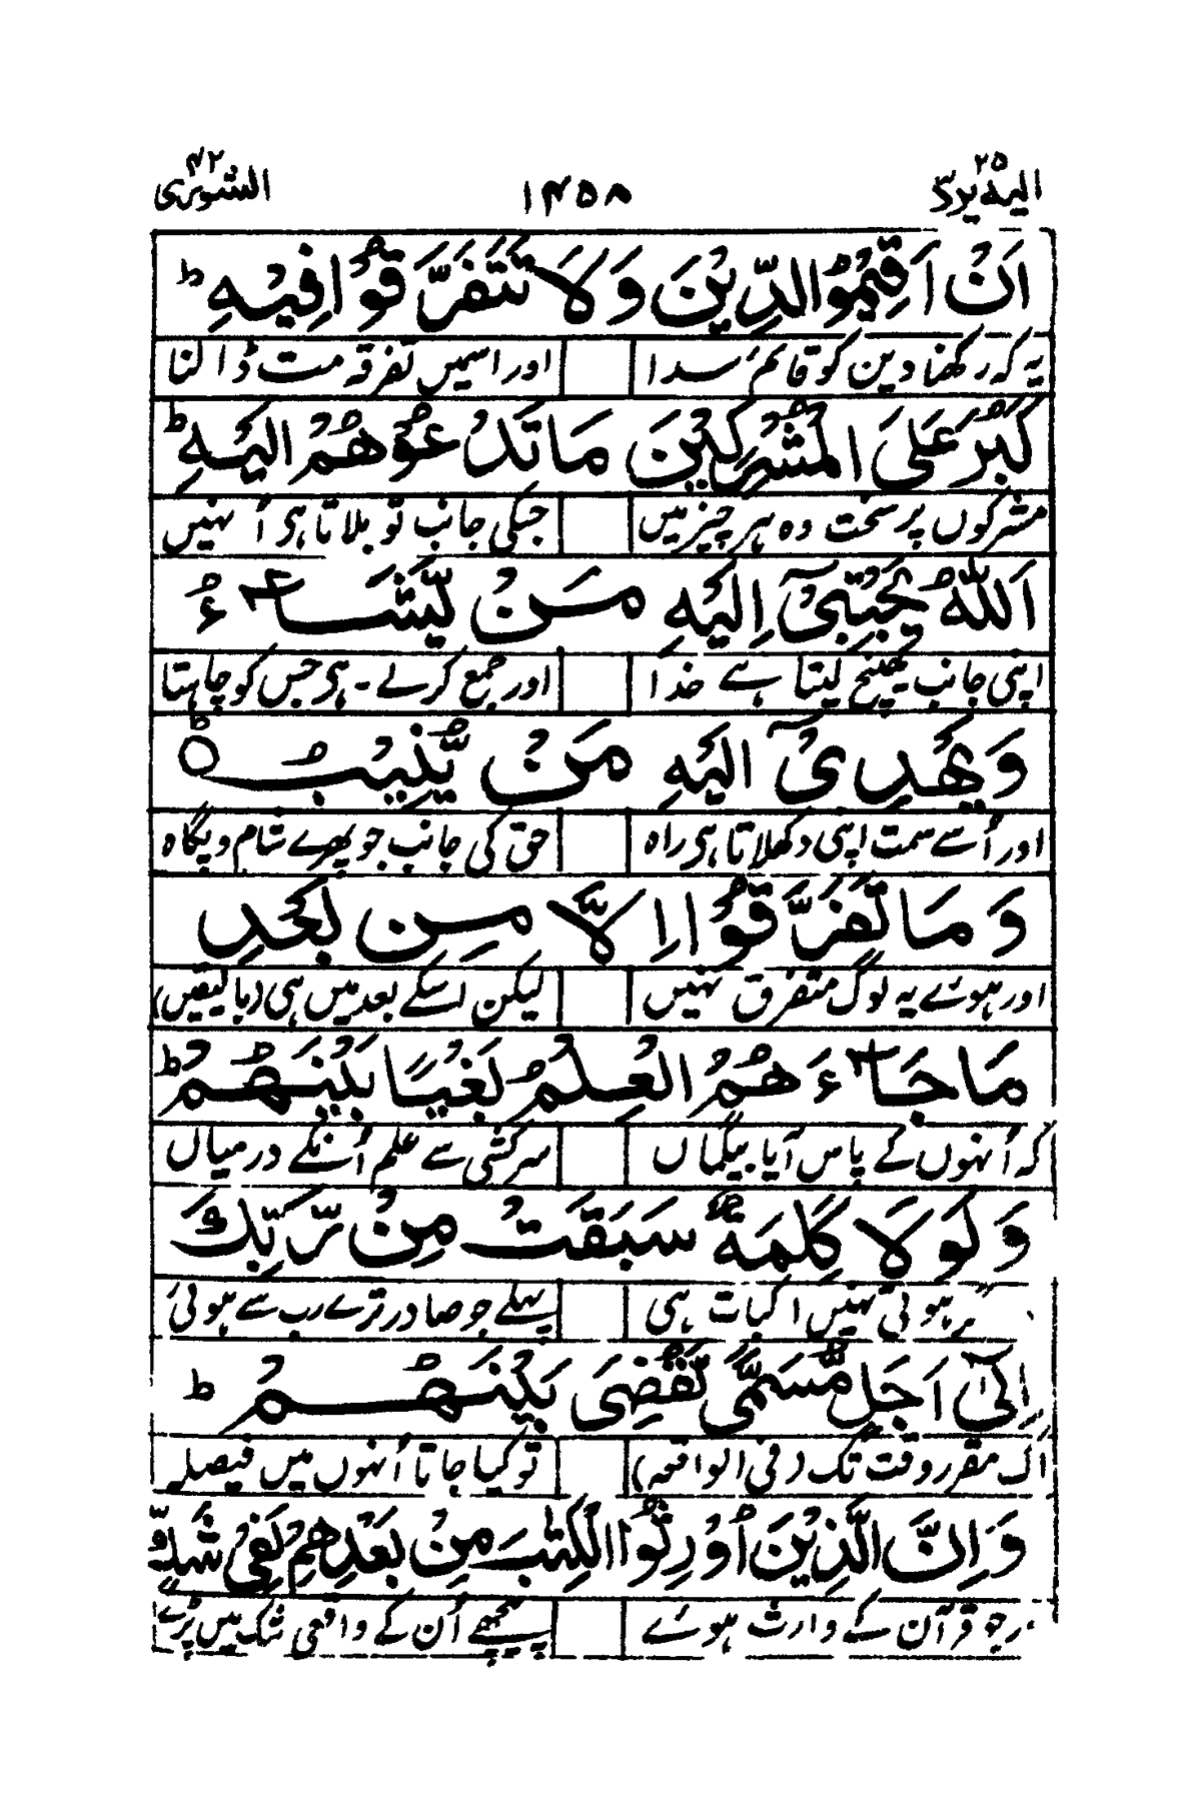 الیہ یرد ۲۵ ۱۴۵۸ الشورى ۴۲
اَنْ اَقِيْمُوا الدِّيْنَ وَلَا تَتَفَرَّقُوْا فِيْهِ ؕ
یہ کہ رکھنا دین کو قائم سدا اور اسمیں تفرقہ مت ڈالنا
كَبُرَ عَلَى الْمُشْرِكِيْنَ مَا تَدْعُوْهُمْ اِلَيْهِ ؕ
مشرکوں پر سخت وہ ہر چیز میں جسکی جانب تو بلاتا ہی اُنہیں
اَللّٰهُ يَجْتَبِيْٓ اِلَيْهِ مَنْ يَّشَآءُ
اپنی جانب کھینچ لیتا ہے خدا اور جمع کرلے ۔ ہی جس کو چاہتا
وَيَهْدِيْٓ اِلَيْهِ مَنْ يُّنِيْبُ ؕ
اور اُسے سمت اپنی دکھلاتا ہی راہ حق کی جانب جو پھرے شام و پگاہ
وَمَا تَفَرَّقُوْٓا اِلَّا مِنْۢ بَعْدِ
اور ہوئے یہ لوگ متفرق نہیں لیکن اسکے بعد میں ہی (بایقیں)
مَا جَآءَهُمُ الْعِلْمُ بَغْيًا بَيْنَهُمْ ؕ
کہ اُنہوں کے پاس آیا بیگماں سرکشی سے علم اُنکے درمیاں
وَلَوْلَا كَلِمَةٌ سَبَقَتْ مِنْ رَّبِّكَ
ہوتی نہیں اکبات ہی پہلے جو صادر ترے رب سے ہوئی
اِلٰٓى اَجَلٍ مُّسَمًّى لَّقُضِيَ بَيْنَهُمْ ؕ
اک مقرر وقت تک (فی الواقعہ) تو کیا جاتا اُنہوں میں فیصلہ
وَاِنَّ الَّذِيْنَ اُوْرِثُوا الْكِتٰبَ مِنْۢ بَعْدِهِمْ لَفِيْ شَكٍّ
جو قرآن کے وارث ہوئے پیچھے اُن کے واقعی شک میں پڑے